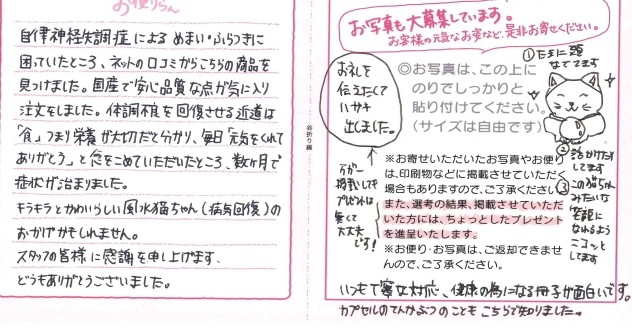 お便りらん
自律神経失調症によるめまい・ふらつきに
困っていたところ、ネットの口コミからこちらの商品を
見つけました。国産で安心品質な点が気に入り
注文をしました。体調不良を回復させる近道は
「食」つまり栄養が大切だと分かり、毎日「元気をくれて
ありがとう」と念をこめていただいたところ、数か月で
症状が治まりました。
キラキラとかわいらしい風水猫ちゃん(病気回復)の
おかげかもしれません。
スタッフの皆様に感謝を申し上げます。
どうもありがとうございました。
谷折り線
お写真も大募集しています。
お客様の元気なお姿など、是非お寄せください。
お礼を
伝えたくて
ハガキ
出しました。
◎お写真は、この上に
のりでしっかりと
貼り付けてください。
(サイズは自由です)
①たまに頭
なでてます
②話かけたり
してます
③この猫ちゃん
みたいな
笑顔に
なれるよう
ニコッと
してます
掲載しても
プレゼントは
無くて
大丈夫
です!
※お寄せいただいたお写真やお便り
は、印刷物などに掲載させていただく
場合もありますので、ご了承ください。
また、選考の結果、掲載させていただ
いた方には、ちょっとしたプレゼント
を進呈いたします。
※お便り・お写真は、ご返却できませ
んので、ご了承ください。
いつも丁寧な対応、健康の為になる冊子が面白いです。
カプセルのてんかぶつのことも こちらで知りました。